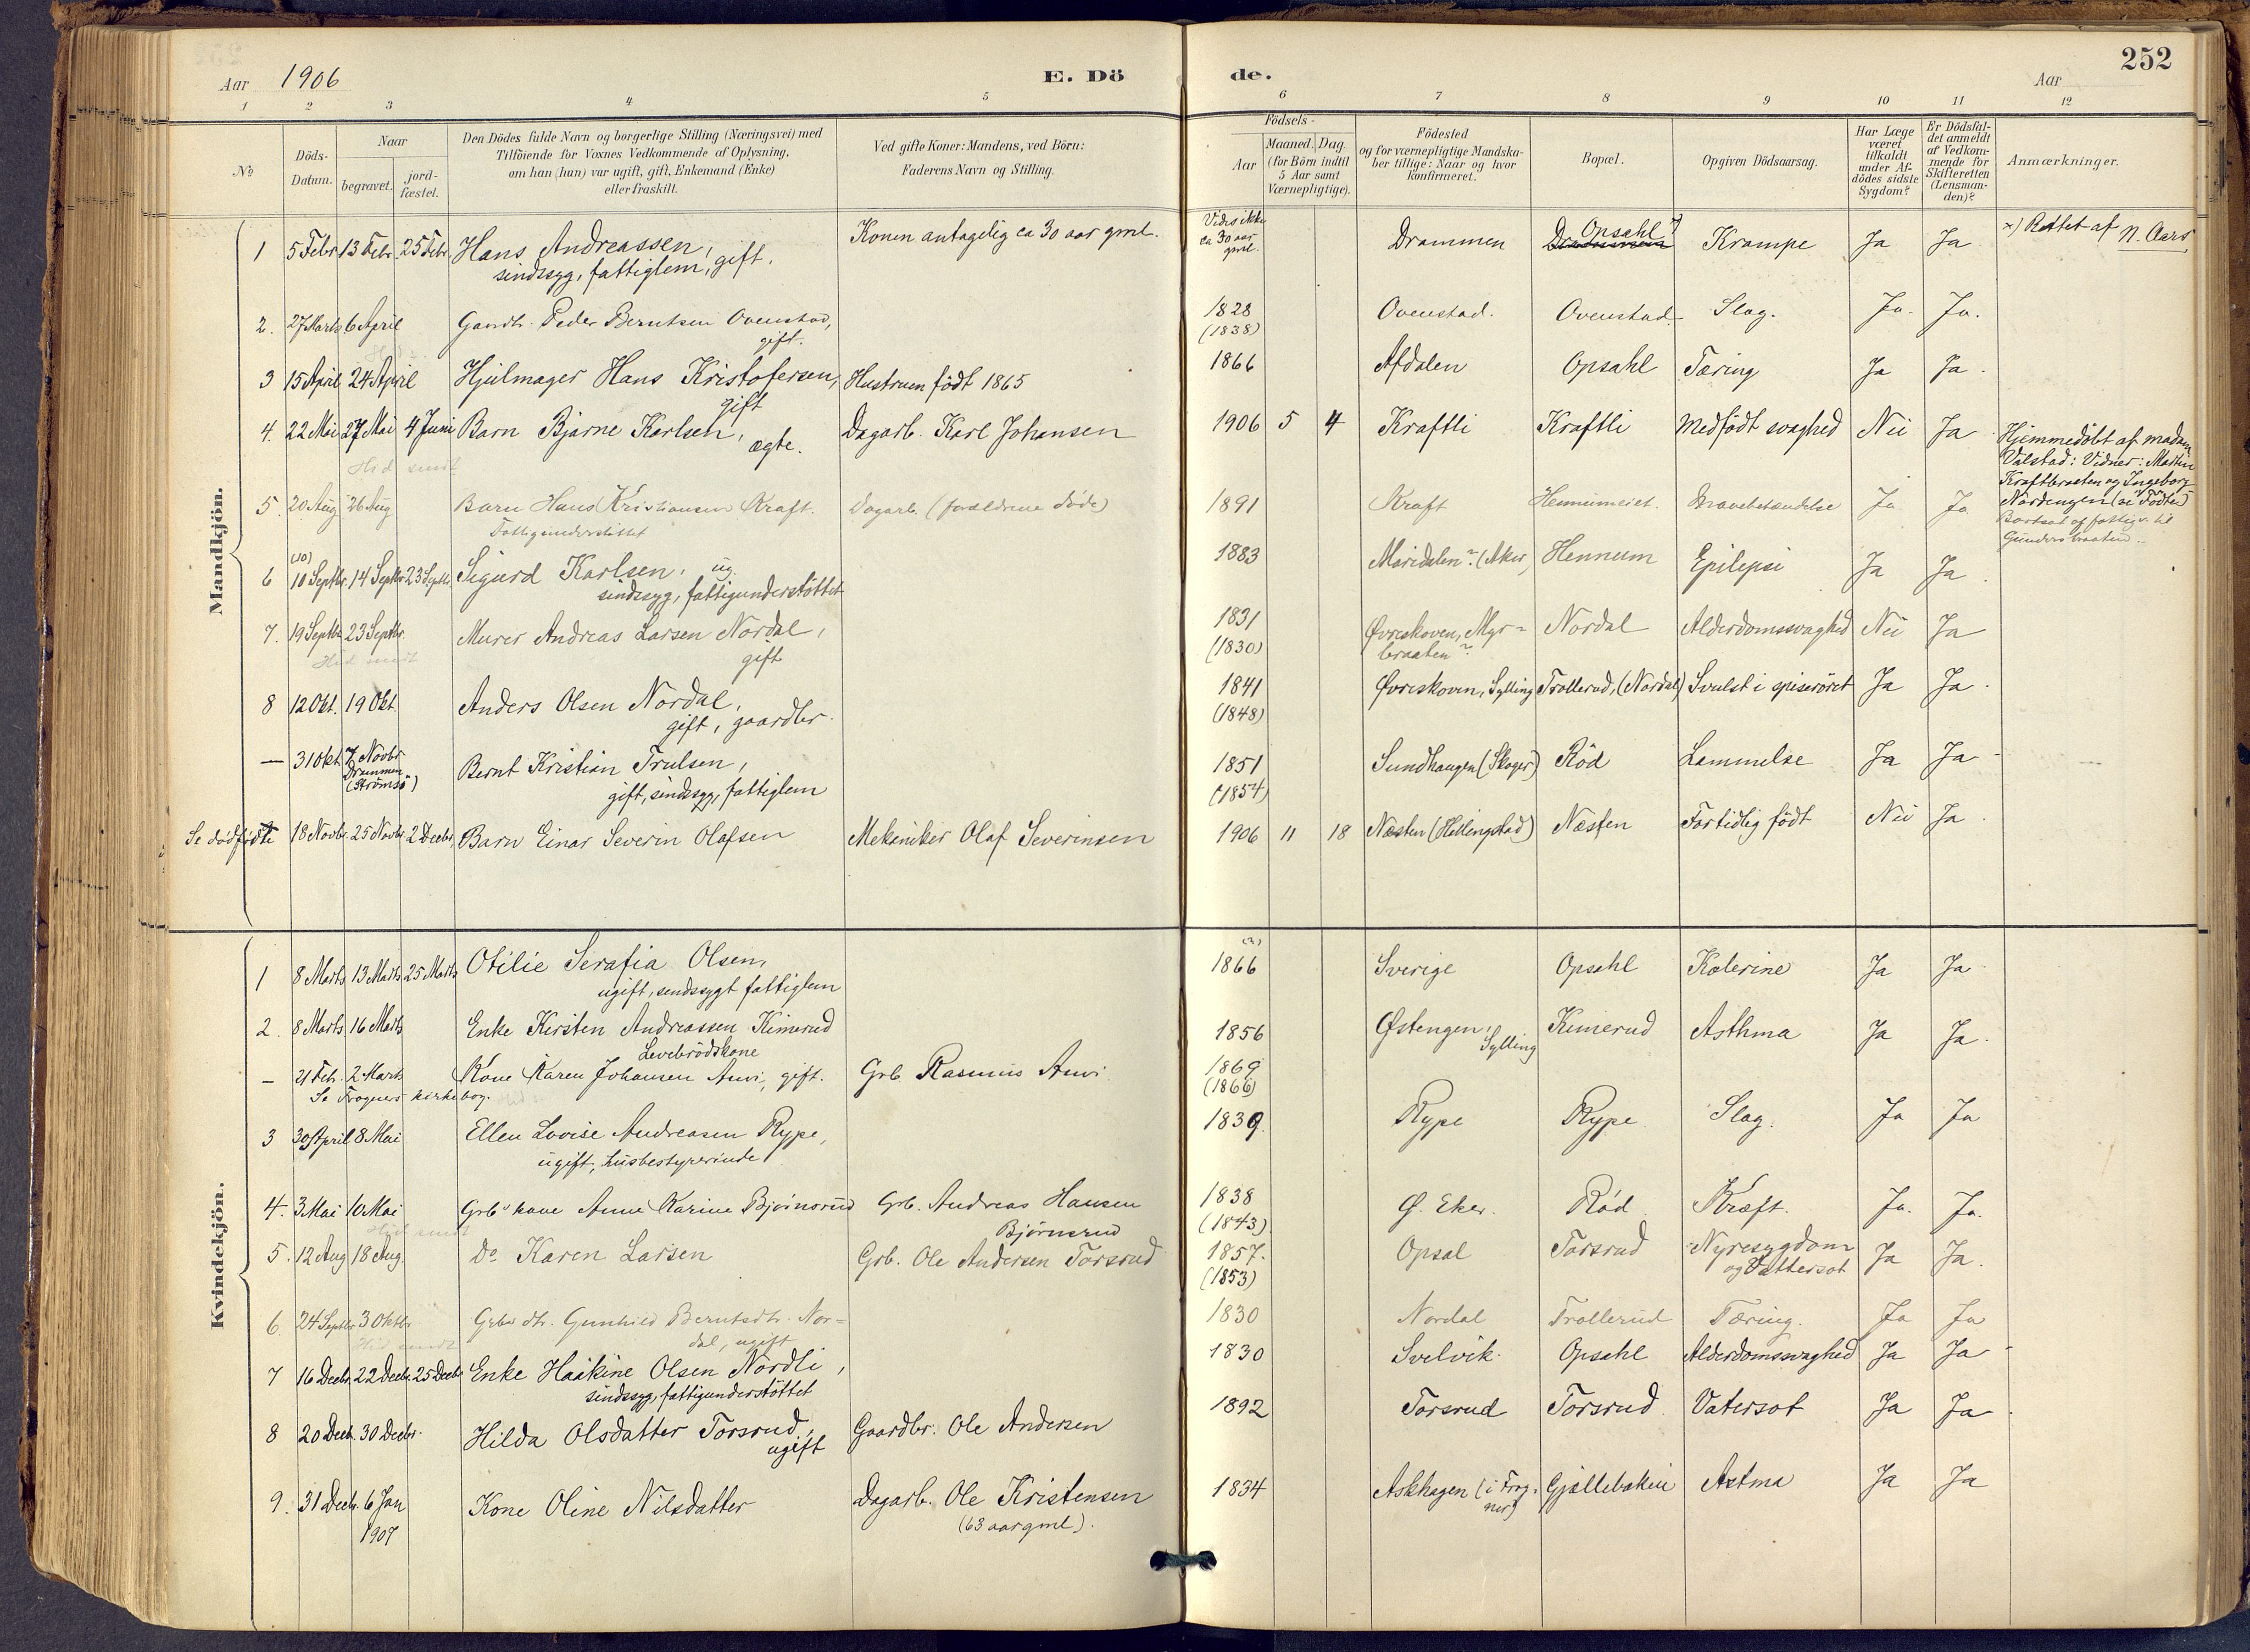 252
Aar 1906
E. Dö
de.
Aar
1 2 3 4 5 6 7 8 9 10 11 12
No
Döds-
Datum.
Naar
begravet.
jord-
fæstet.
Den Dödes fulde Navn og borgerlige Stilling (Næringsvei) med
Tilföiende for Voxnes Vedkommende af Oplysning,
om han (hun) var ugift, gift, Enkemand (Enke)
eller fraskilt.
Ved gifte Koner: Mandens, ved Börn:
Faderens Navn og Stilling.
Födsels-
Aar
Maaned. Dag.
(for Börn indtil
5 Aar samt
Værnepligtige).
Födested
og for værnepligtige Mandska-
ber tillige: Naar og hvor
konfirmeret.
Bopæl.
Opgiven Dödsaarsag.
Har Læge
været
tilkaldt
under Af-
dödes sidste
Sygdom?
Er Dödsfal-
det anmeldt
af Vedkom-
mende for
Skifteretten
(Lensman-
den)?
Anmærkninger.
Mandkjön.
1 5 Febr 13 Febr. 25 Febr. Hans Andreassen,
sindssyg, fattiglem, gift.
Konen antagelig ca 30 aar gml.
Vides ikke
ca 30 aar
gml.
Drammen
Opsahl x)
Drammen
Krampe Ja Ja
x) Rettet af N. Aars
2. 27 Marts 6 April Gaardbr. Peder Berntsen Ovenstad,
gift.
1828
(1838)
Ovenstad. Ovenstad. Slag. Ja. Ja.
3 15 April 24 April Hjulmager Hans Kristofersen,
gift
Hustruen födt 1865
1866 Afdalen Opsahl Tæring Ja Ja.
4. 22 Mai 27 Mai 4 Juni Barn Bjarne Karlsen,
ægte.
Dagarb. Karl Johansen
1906 5 4 Kraftli Kraftli Medfödt svaghed Nei Ja
Hjemmedöbt af madam
Valstad: Vidner: Martin
Kraftbraaten og Ingeborg
Nordengen (se Födte)
Hid sendt
5 20 Aug 26 Aug Barn Hans Kristiansen Kraft.
Fattigunderstöttet
Dagarb. (forældrene döde)
1891 Kraft Hennumeiet. Ja Ja
Bortsat af fattigv. til
(10)
6 10 Septbr. 14 Septbr. 23 Septbr. Sigurd Karlsen, ug.
sindssyg, fattigunderstöttet
1883 Maridalen? (Aker) Hennum Epilepsi Ja Ja.
7. 19 Septbr. 23 Septbr. Murer Andreas Larsen Nordal,
gift
1831
(1830)
Øvreskoven, Myr-
braaten?
Nordal Alderdomssvaghed Nei Ja
Hid sendt
8 12 Okt. 19 Okt. Anders Olsen Nordal,
gift, gaardbr.
1841
(1848)
Øvreskoven, Sylling Trollerud, (Nordal) Svulst i spiseröret Ja Ja.
— 31 Okt. 7 Novbr
Drammen
(Strömsö)
Bernt Kristian Trulsen,
gift, sindssyg, fattiglem
1851
(1854)
Sundhaugen (Skoger) Röd Lammelse Ja Ja
Se dödfödte 18 Novbr. 25 Novbr. 2 Decbr. Barn Einar Severin Olafsen
Mekaniker Olaf Severinsen
1906 11 18 Næsten (Hellingstad) Næsten For tidlig födt Nei Ja.
Kvindekjön.
1 8 Marts 13 Marts 25 Marts Otilie Serafia Olsen,
ugift, sindssygt fattiglem
(?)
1866 Sverige Opsahl Kolerine Ja Ja
2. 8 Marts 16 Marts Enke Kirsten Andreassen Kimerud
Levebrödskone
1856 Østengen,
Sylling
Kimerud Asthma Ja Ja.
— 21 Feb. 2 Marts Kone Karen Johansen Auvi, gift.
Grb Rasmus Auvi
1869
(1866)
Se Frogners kirkebog.
3 30 April 8 Mai Ellen Lovise Andreasen Rype,
ugift, husbestyrerinde
1839. Rype Rype Slag. Ja Ja
4. 3 Mai 10 Mai Grb's kone Anne Karine Bjørnsrud
Grb. Andreas Hansen
Bjørnsrud
1838
(1843)
Ø. Eker. Röd Kræft. Ja. Ja.
Hid sendt
5. 12 Aug 18 Aug. Do Karen Larsen
Grb. Ole Andersen Torsrud
1857.
(1853)
Opsal Torsrud Nyresygdom
og Vattersot
Ja Ja.
6. 24 Septbr 3 Oktbr Grbs dtr. Gunhild Berntsdtr. Nor-
dal, ugift
1830 Nordal Trollerud Tæring. Ja Ja
Hid sendt
7 16 Decbr. 22 Decbr. 25 Decbr Enke Haakine Olsen Nordli,
sindssyg, fattigunderstöttet
1830 Svelvik. Opsahl Alderdomssvaghed Ja Ja
8 20 Decb. 30 Decbr. Hilda Olsdatter Torsrud,
ugift
Gaardbr. Ole Andersen
1892 Torsrud Torsrud Vatersot Ja Ja
9. 31 Decb. 6 Jan
1907
Kone Oline Nilsdatter
Dagarb. Ole Kristensen
(63 aar gml).
1834 Askhagen (i Frog-
ner)
Gjellebækeie Astma Ja Ja